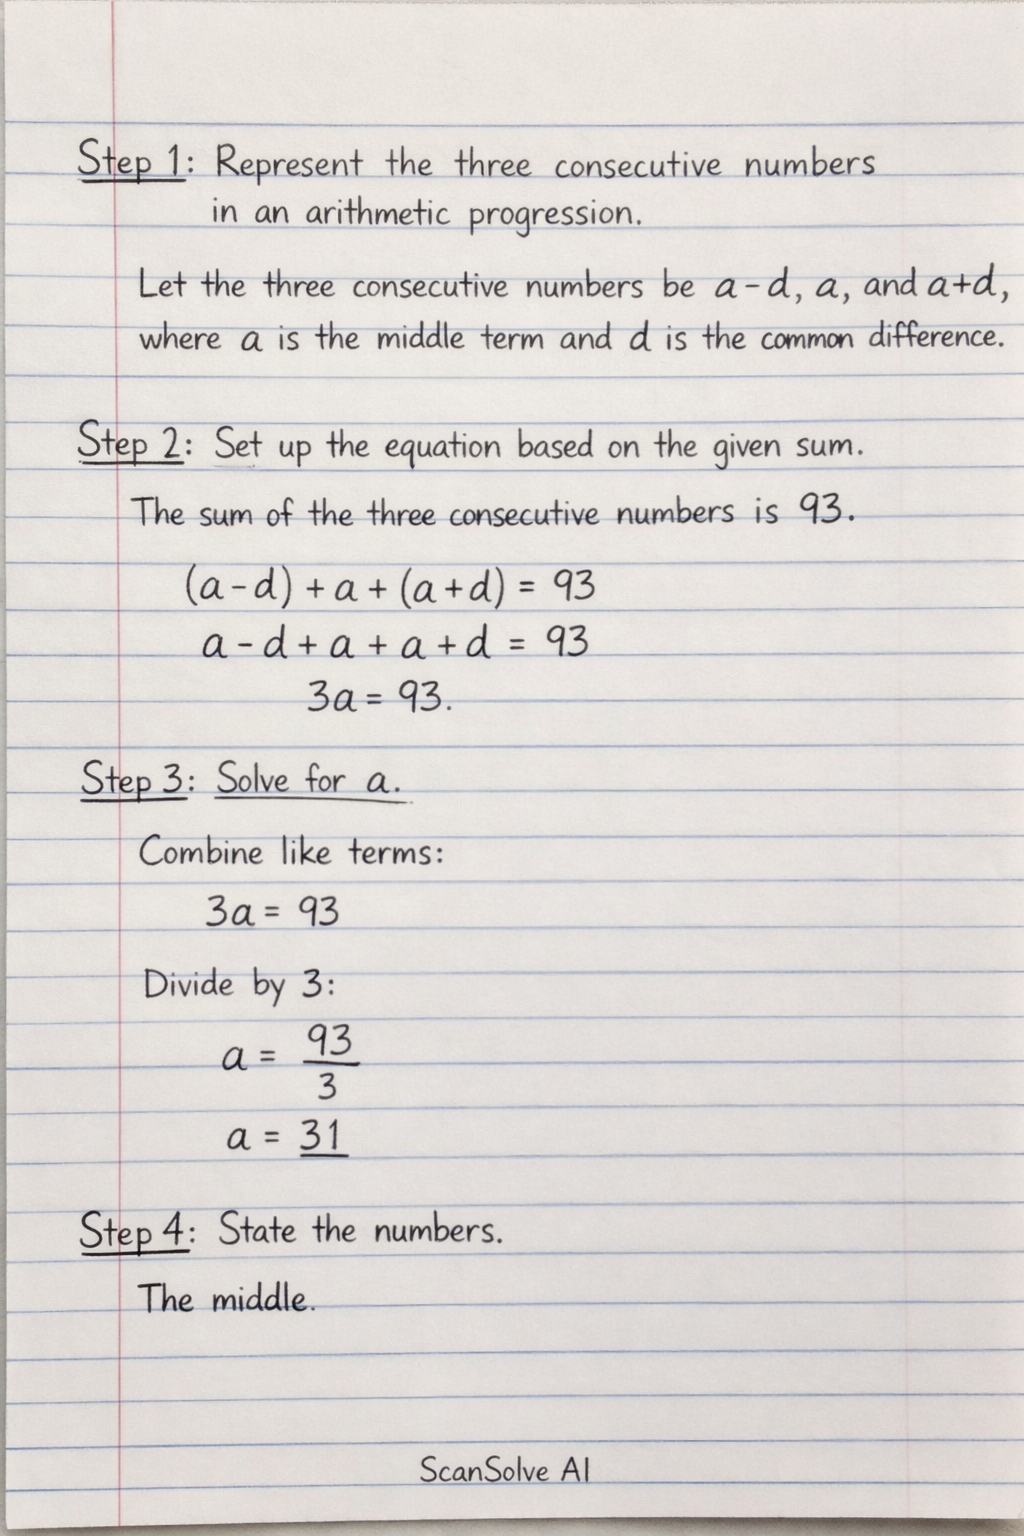 Step 1: Represent the three consecutive numbers
in an arithmetic progression.
Let the three consecutive numbers be a-d, a, and a+d,
where a is the middle term and d is the common difference.
Step 2: Set up the equation based on the given sum.
The sum of the three consecutive numbers is 93.
(a-d) + a + (a+d) = 93
a - d + a + a + d = 93
3a = 93.
Step 3: Solve for a.
Combine like terms:
3a = 93
Divide by 3:
a = 93/3
a = 31
Step 4: State the numbers.
The middle.
ScanSolve AI